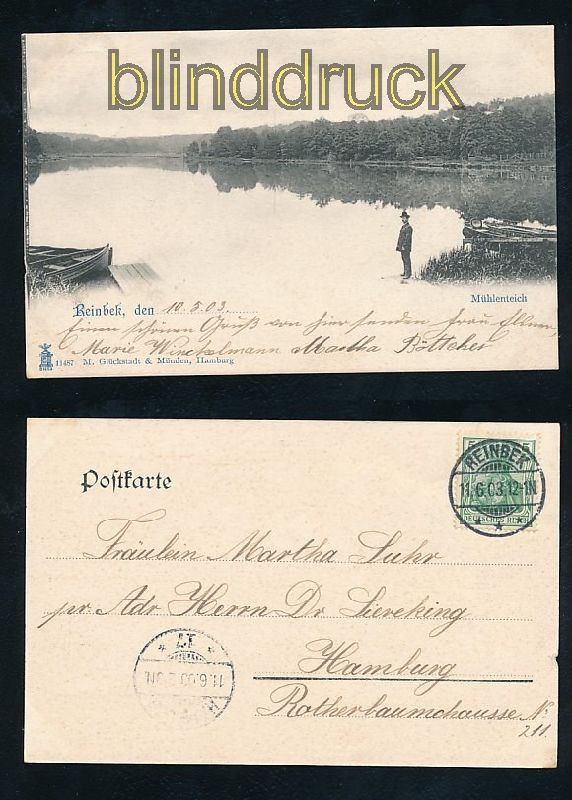 blinddruck
Mühlenteich
Reinbek, den 10.5.03.
Einen schönen Gruß von hier senden Frau
Marie Winckelmann Martha Böttcher
11487 M. Glückstadt & Münden, Hamburg
Postkarte
REINBEK
11.6.03.12-1N
DEUTSCHES REICH
Fräulein Martha Luhr
pr Adr Herrn Dr Sieveking
Hamburg
11.6.03
Rotherbaumchausse No
211.